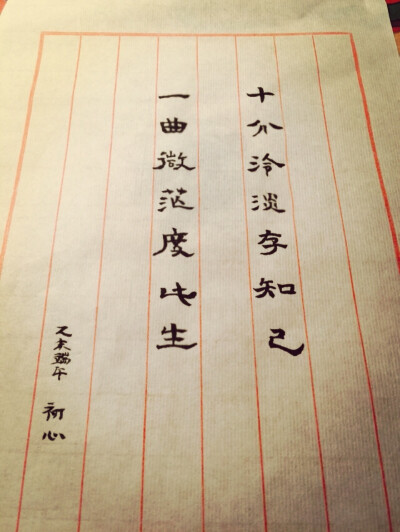 十分冷淡存知己
一曲微茫度此生
乙未端午 初心